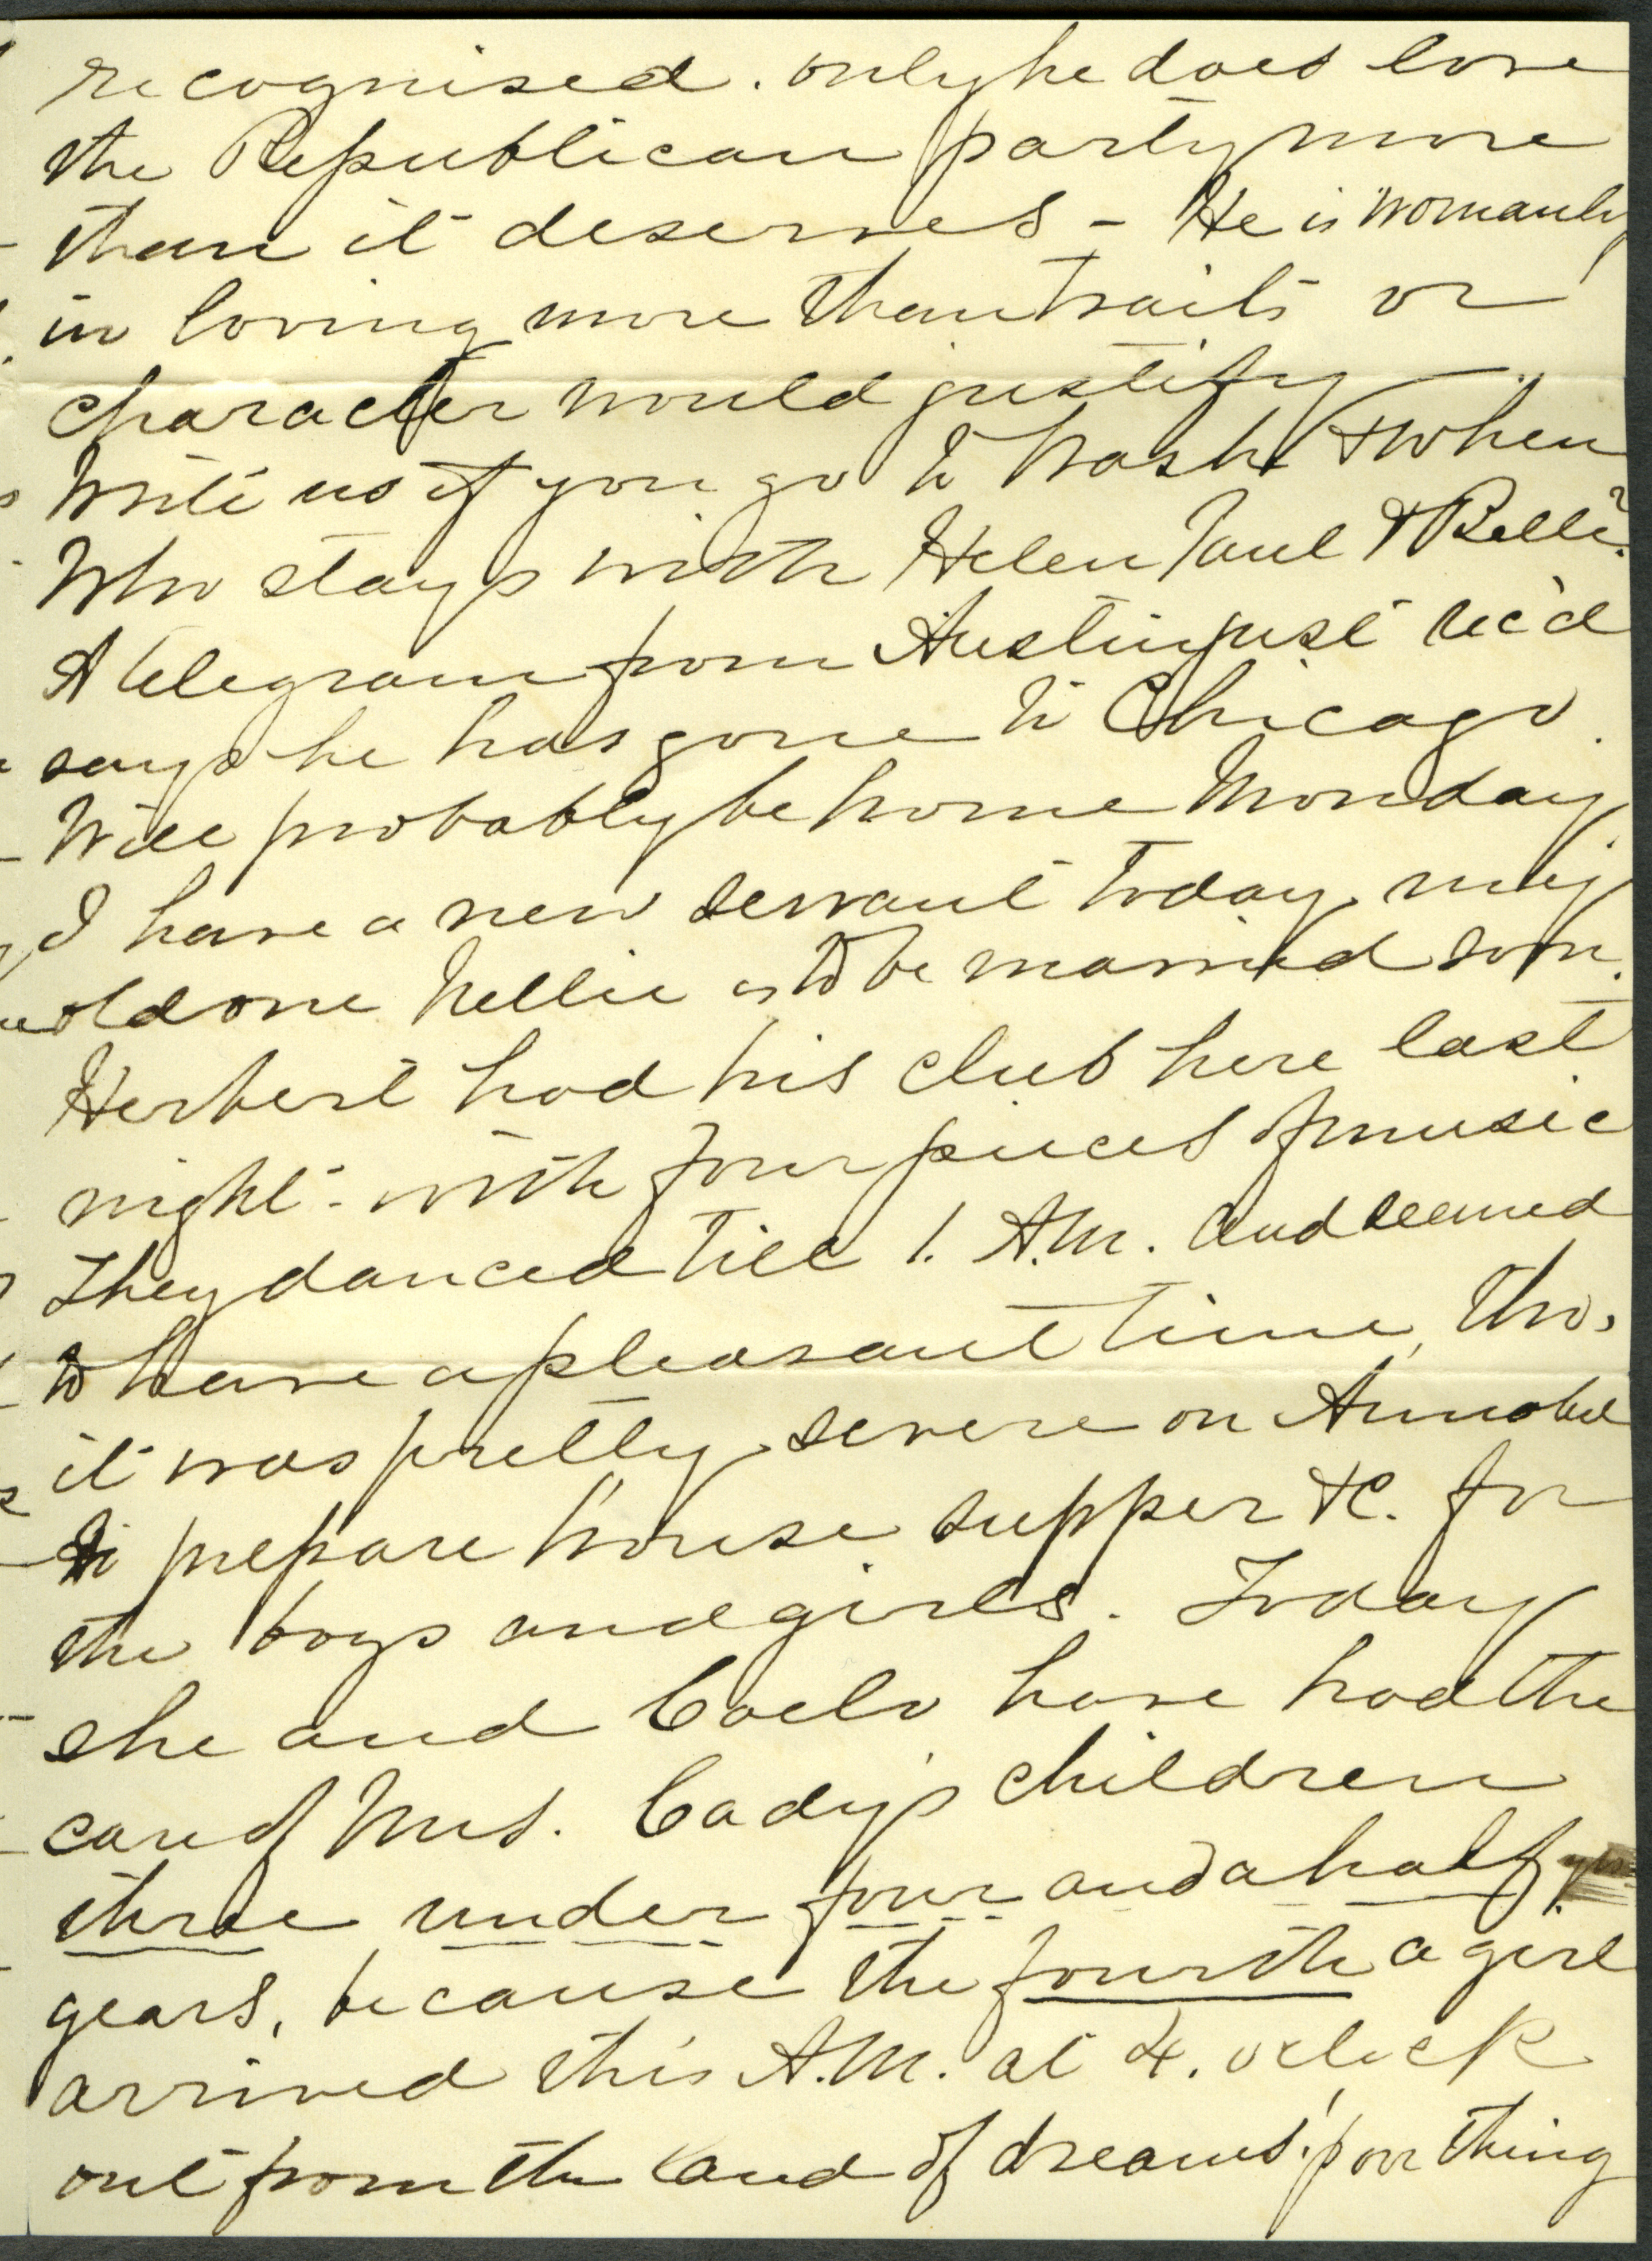 recognised. only he does love
the Republican party more
than it deserves - He is womanly
in loving more than traits or
character would justify —.
Write us if you go to Wash. & when
Who stays with Helen Paul & Belle?
A telegram from Austin just rec'd
says he has gone to Chicago.
Will probably be home Monday.
I have a new servant today, my
old one Nellie is to be married soon.
Herbert had his club here last
night - with four pieces of music
They danced till 1. A.M. and seemed
to have a pleasant time, tho,
it was pretty severe on Annabel
to prepare house supper &c. for
the boys and girls. Today
she and Coelo have had the
care of Mrs. Cady's children
three under four and a half
years, because the fourth a girl
arrived this A.M. at 4. oclock
out from the land of dreams! poor thing